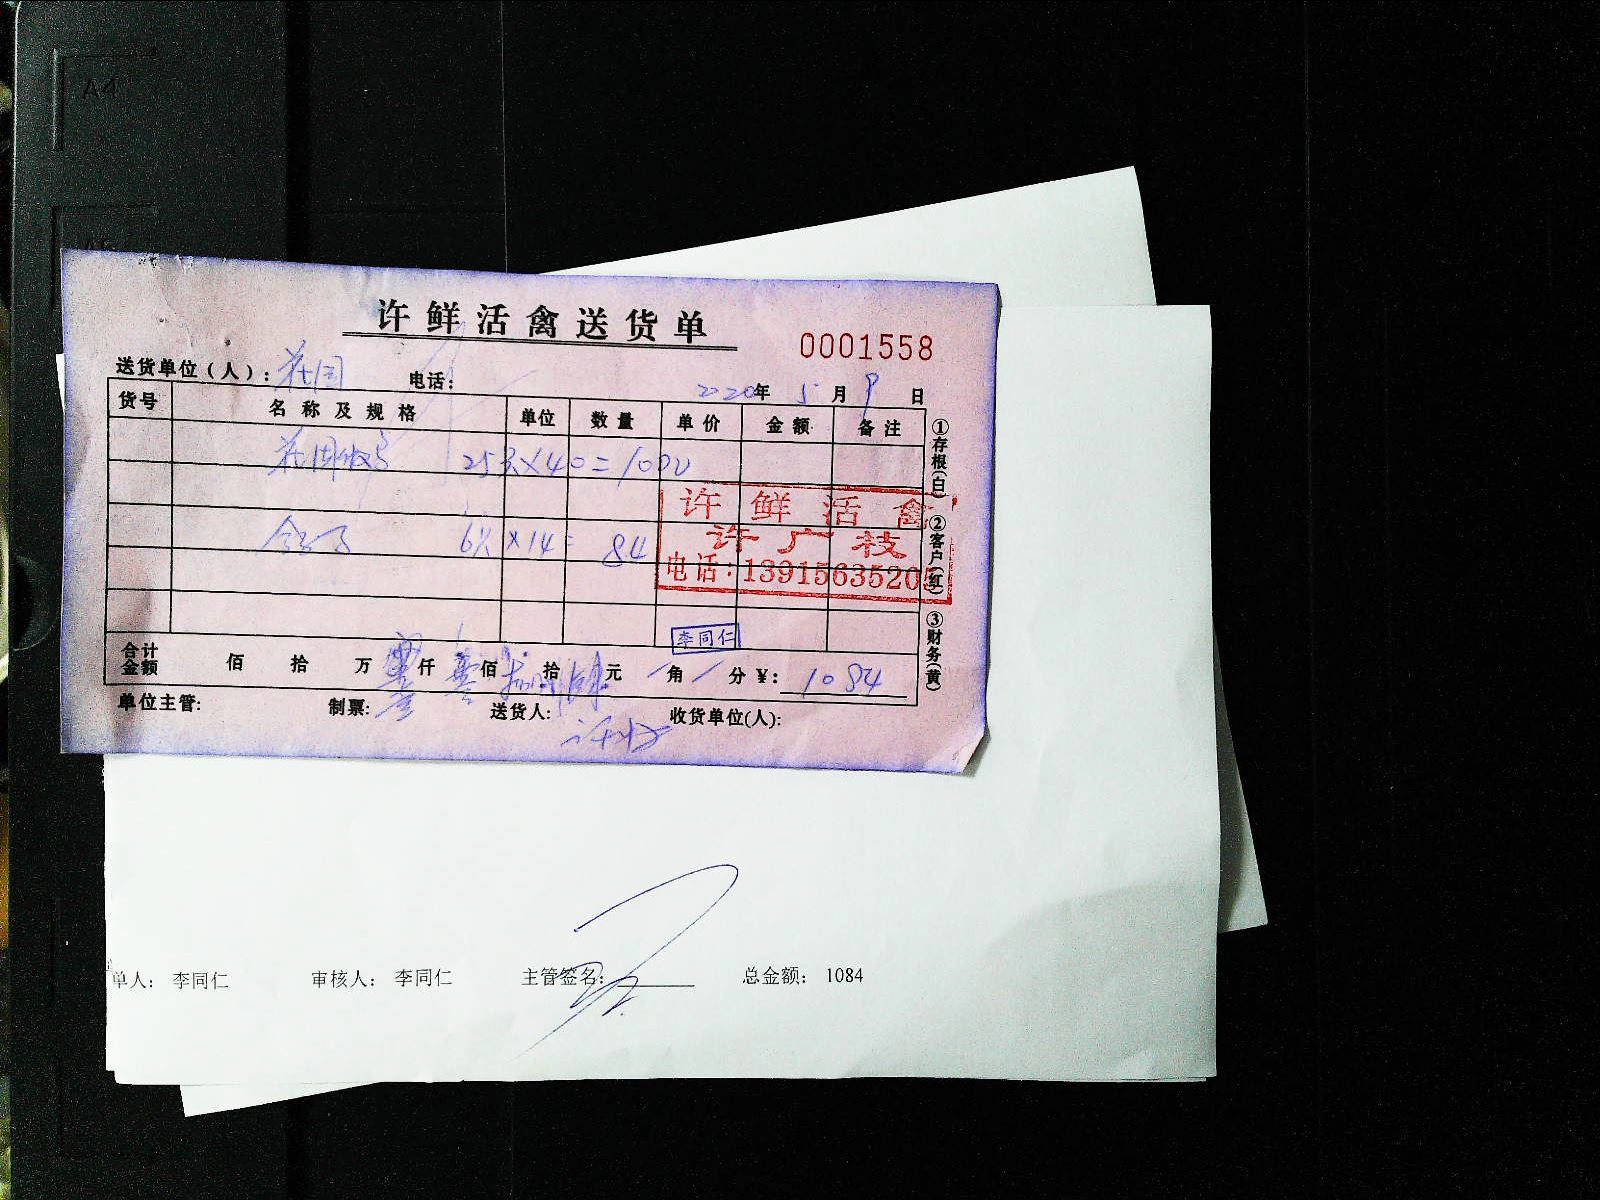 A4
许鲜活禽送货单
0001558
送货单位（人）： 电话： 2020年 5月 9日
货号 名称及规格 单位 数量 单价 金额 备注
25只×40=1000
6只×14=84
许鲜活禽
许广枝
电话：13915635205
李同仁
合计金额 佰 拾 万 仟 佰 拾 元 角 分 ¥：1084
单位主管: 制票: 送货人: 收货单位(人):
①存根(白) ②客户(红) ③财务(黄)
单人： 李同仁 审核人： 李同仁 主管签名： 总金额： 1084